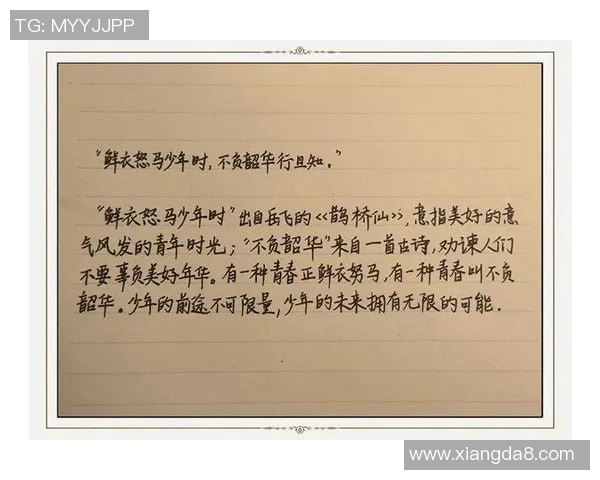 TG: MYYJJPP
"鲜衣怒马少年时,不负韶华行且知。"
"鲜衣怒马少年时"出自岳飞的《鹊桥仙》,意指美好的意
气风发的青年时光;"不负韶华"来自一首古诗,劝谏人们
不要辜负美好年华。有一种青春正鲜衣努马,有一种青春叫不负
韶华。少年的前途不可限量,少年的未来拥有无限的可能.
www.xiangda8.com